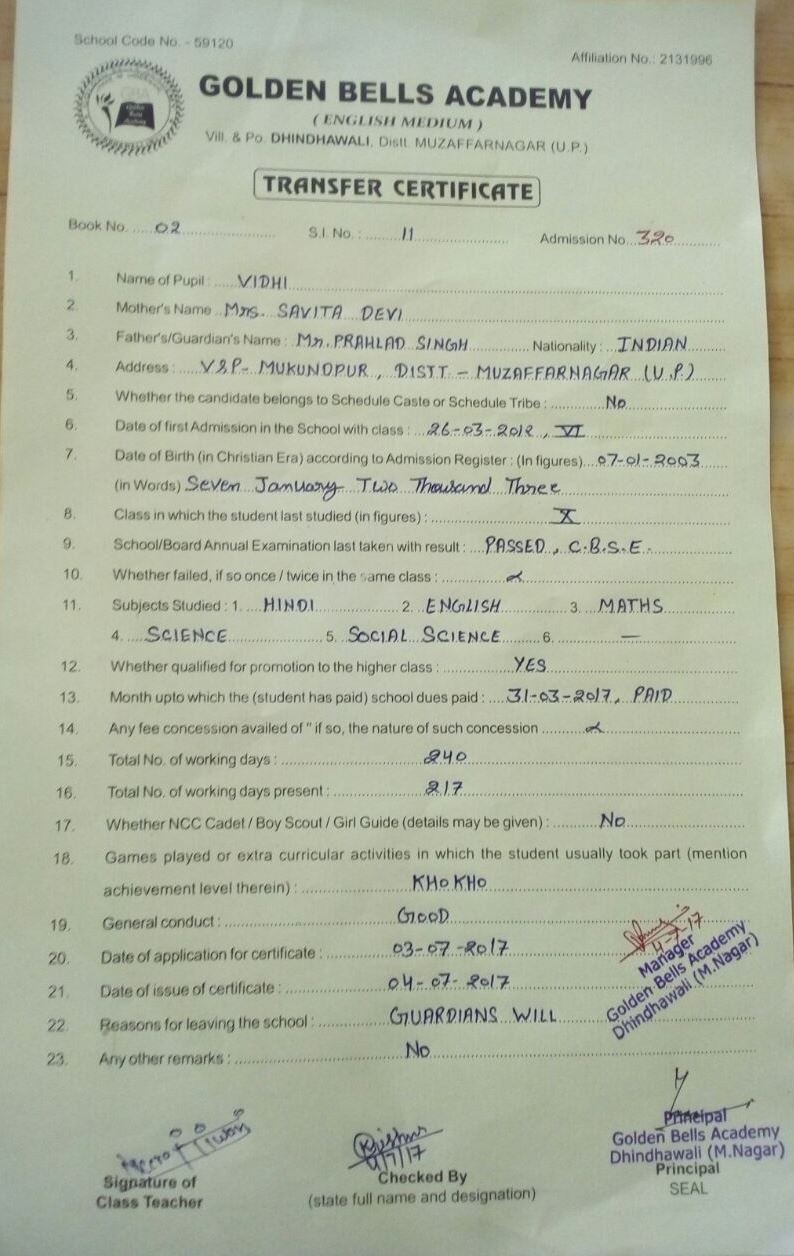 School Code No. - 59120
Affiliation No.: 2131996
GOLDEN BELLS ACADEMY
( ENGLISH MEDIUM )
Vill. & Po. DHINDHAWALI, Distt. MUZAFFARNAGAR (U.P.)
TRANSFER CERTIFICATE
Book No. 02 S.I. No. : 11 Admission No. 320
1. Name of Pupil : VIDHI
2. Mother's Name Mrs. SAVITA DEVI
3. Father's/Guardian's Name : Mr. PRAHLAD SINGH Nationality : INDIAN
4. Address : V&P- MUKUNDPUR, DISTT - MUZAFFARNAGAR (U.P.)
5. Whether the candidate belongs to Schedule Caste or Schedule Tribe : No
6. Date of first Admission in the School with class : 26-03-2012, VI
7. Date of Birth (in Christian Era) according to Admission Register : (In figures) 07-01-2003
(in Words) Seven January Two Thousand Three
8. Class in which the student last studied (in figures) : X
9. School/Board Annual Examination last taken with result : PASSED, C.B.S.E.
10. Whether failed, if so once / twice in the same class :
11. Subjects Studied : 1. HINDI 2. ENGLISH 3. MATHS
4. SCIENCE 5. SOCIAL SCIENCE 6. —
12. Whether qualified for promotion to the higher class : YES
13. Month upto which the (student has paid) school dues paid : 31-03-2017, PAID
14. Any fee concession availed of " if so, the nature of such concession
15. Total No. of working days : 240
16. Total No. of working days present : 217
17. Whether NCC Cadet / Boy Scout / Girl Guide (details may be given) : No
18. Games played or extra curricular activities in which the student usually took part (mention
achievement level therein) : KHO KHO
19. General conduct : GOOD
20. Date of application for certificate : 03-07-2017
21. Date of issue of certificate : 04-07-2017
22. Reasons for leaving the school : GUARDIANS WILL
23. Any other remarks : No
4-7-17
Manager
Golden Bells Academy
Dhindhawali (M.Nagar)
Signature of
Class Teacher
4/7/17
Checked By
(state full name and designation)
Principal
Golden Bells Academy
Dhindhawali (M.Nagar)
Principal
SEAL